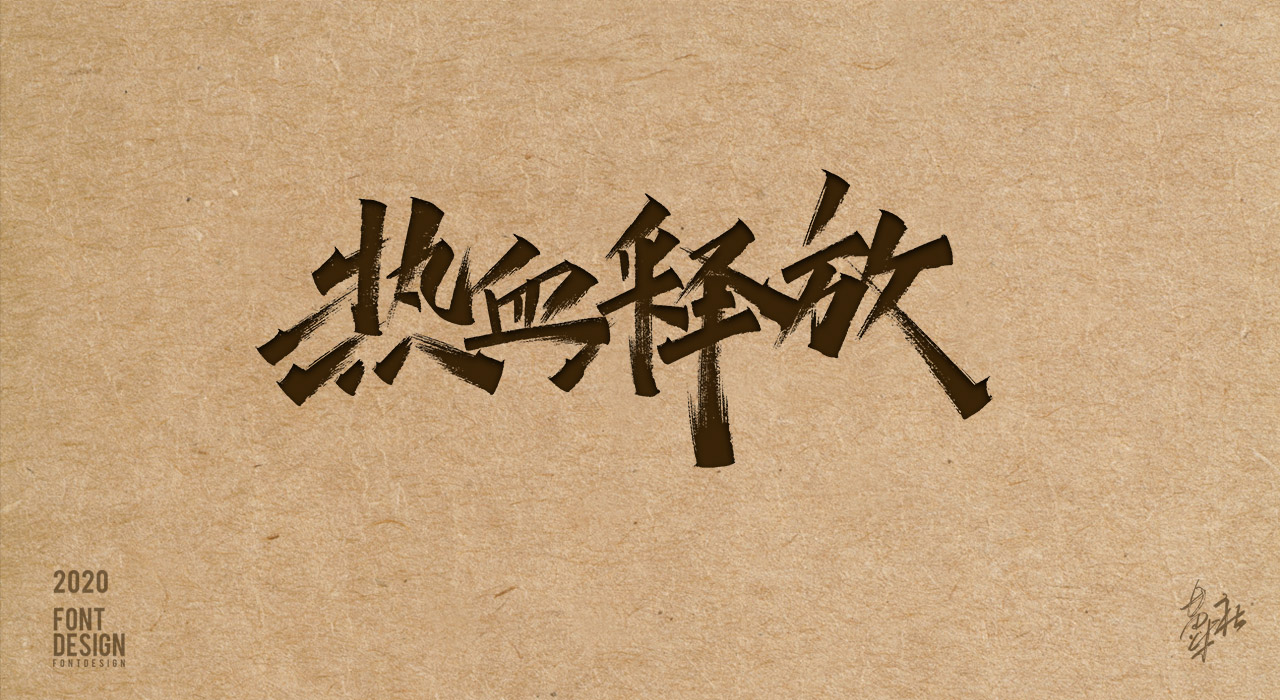 热血释放
2020
FONT
DESIGN
FONTDESIGN